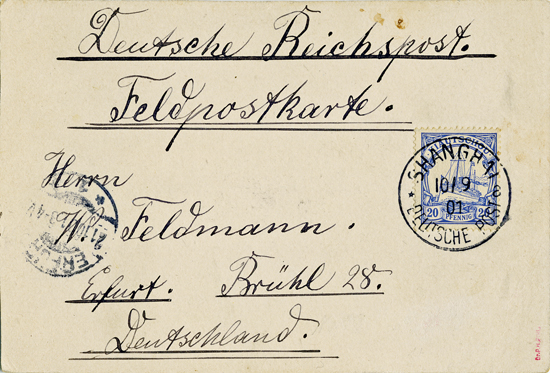 Deutsche Reichspost.
Feldpostkarte.
KIAUTSCHOU
20 PFENNIG 20
SHANGHAI
10/9
01
* DEUTSCHE POST
Herrn
W. Feldmann.
Erfurt. Brühl 28.
Deutschland.
ERFURT